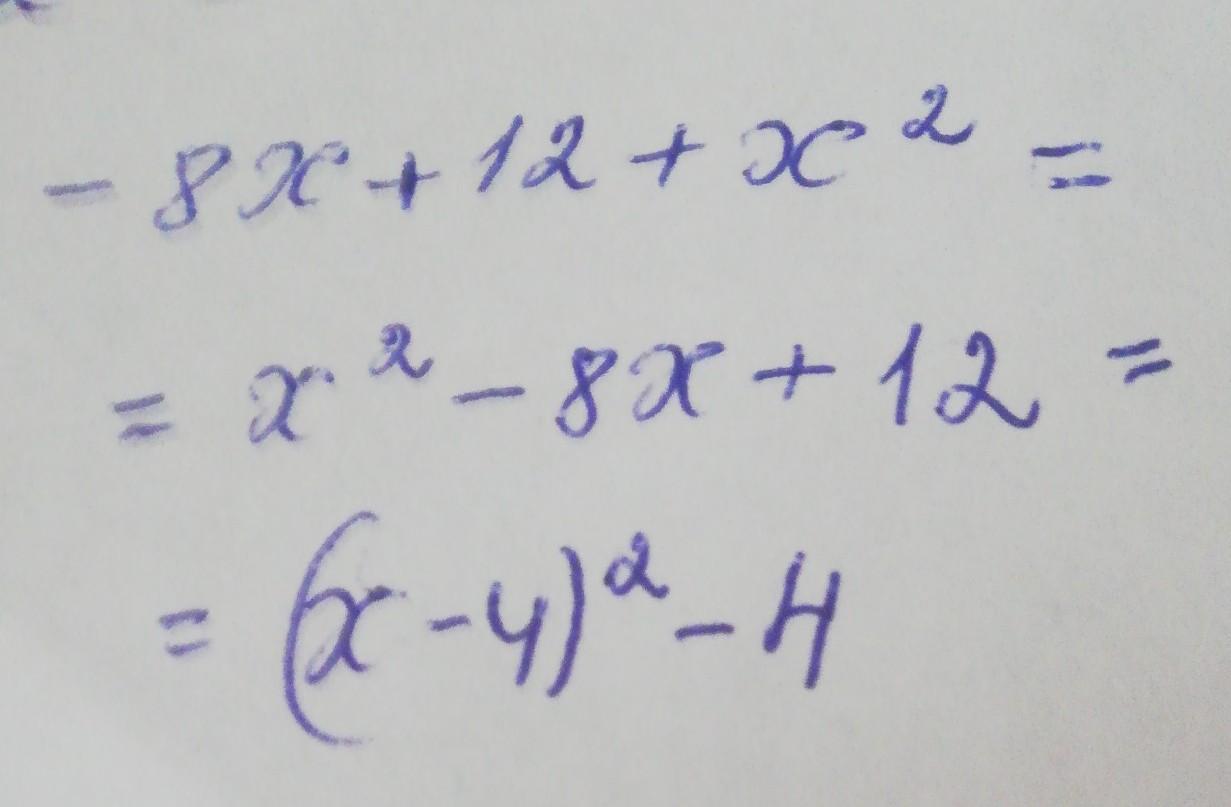 - 8x + 12 + x² =
= x² - 8x + 12 =
= (x - 4)² - 4